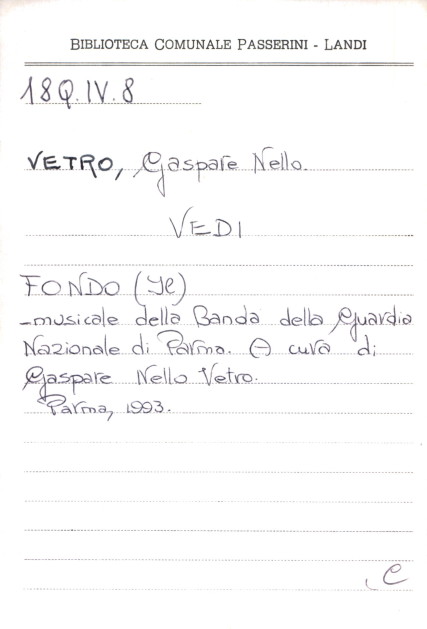 BIBLIOTECA COMUNALE PASSERINI - LANDI
18Q.IV.8
VETRO, Gaspare Nello.
VEDI
FONDO (Il)
-musicale della Banda della Guardia
Nazionale di Parma. A cura di
Gaspare Nello Vetro.
Parma, 1993.
C